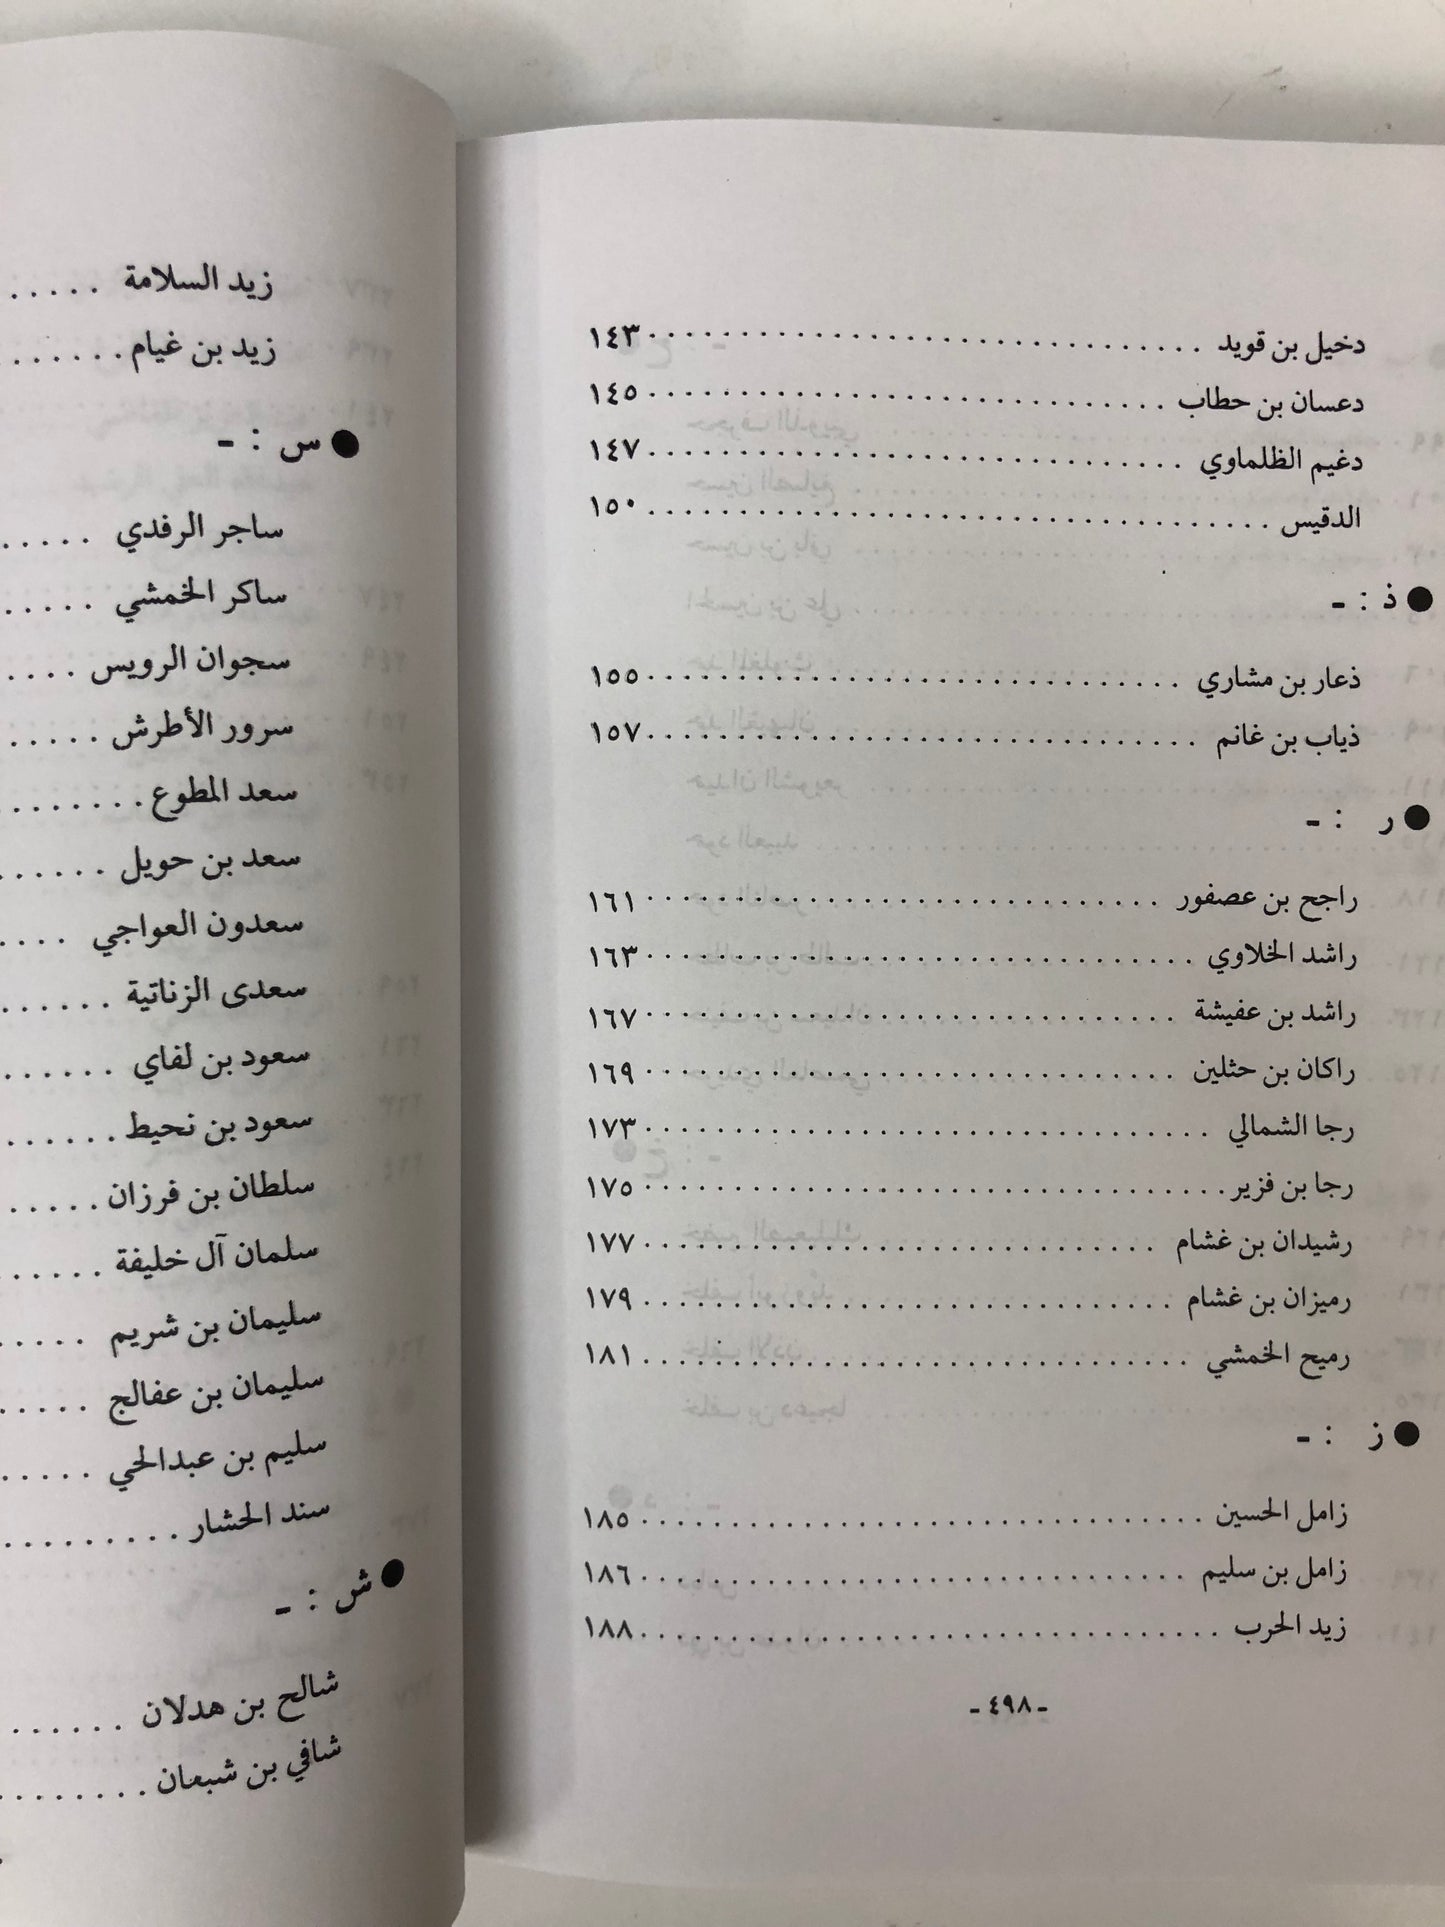 دخيل بن قويد ........ ١٤٣
دعسان بن حطاب ........ ١٤٥
دغيم الظلماوي ........ ١٤٧
الدقيس ........ ١٥٠
● ذ : -
ذعار بن مشاري ........ ١٥٥
ذياب بن غانم ........ ١٥٧
● ر : -
راجح بن عصفور ........ ١٦١
راشد الخلاوي ........ ١٦٣
راشد بن عفيشة ........ ١٦٧
راكان بن حثلين ........ ١٦٩
رجا الشمالي ........ ١٧٣
رجا بن فزير ........ ١٧٥
رشيدان بن غشام ........ ١٧٧
رميزان بن غشام ........ ١٧٩
رميح الخمشي ........ ١٨١
● ز : -
زامل الحسين ........ ١٨٥
زامل بن سليم ........ ١٨٦
زيد الحرب ........ ١٨٨
- ٤٩٨ -
زيد السلامة .....
زيد بن غيام ......
● س : -
ساجر الرفدي .....
ساكر الخمشي .....
سجوان الرويس ....
سرور الأطرش .....
سعد المطوع .......
سعد بن حويل ......
سعدون العواجي ....
سعدى الزناتية ......
سعود بن لفاي ......
سعود بن نحيط ......
سلطان بن فرزان .....
سلمان آل خليفة ......
سليمان بن شريم .....
سليمان بن عفالج .....
سليم بن عبدالحي .....
سند الحشار .........
● ش : -
شالح بن هدلان ......
شافي بن شبعان ........